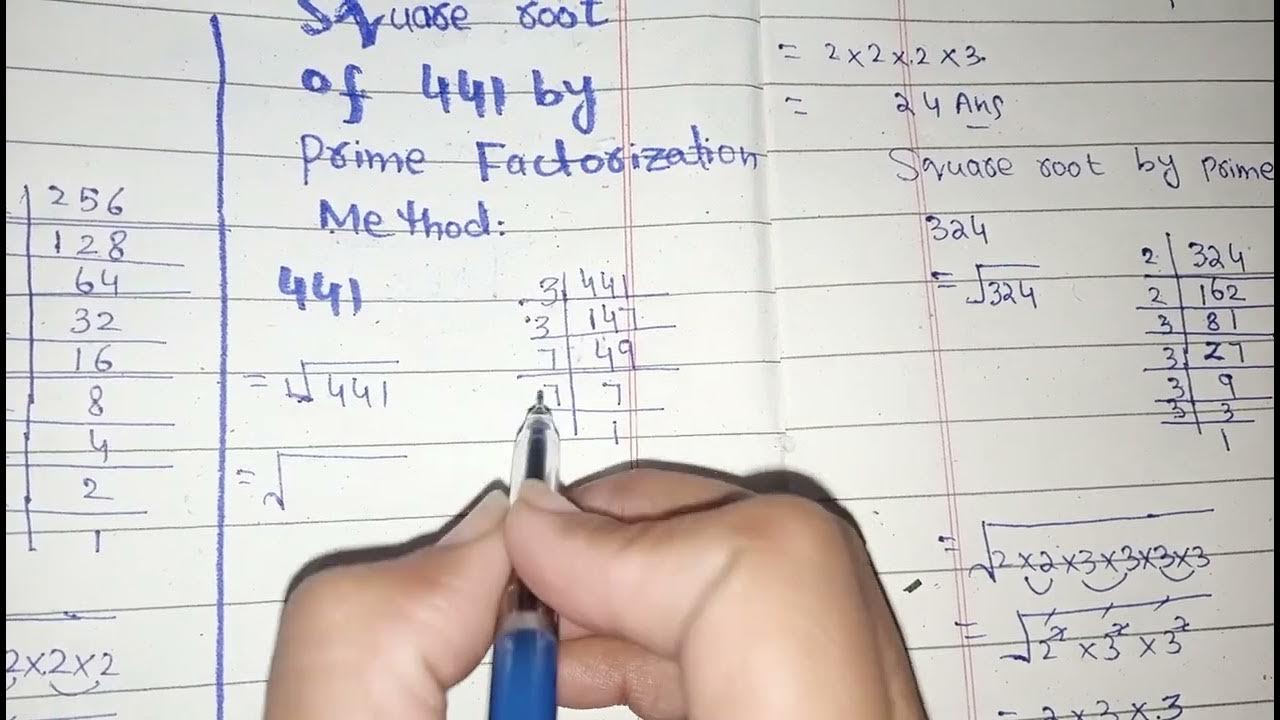 256
128
64
32
16
8
4
2
1
2×2×2
Square root
of 441 by
Prime Factorization
Method:
441
3 | 441
3 | 147
7 | 49
7 | 7
1
= √441
= √
= 2×2×2×3
= 24 Ans
Square root by prime
324
= √324
2 | 324
2 | 162
3 | 81
3 | 27
3 | 9
3 | 3
1
= √2×2×3×3×3×3
= √2²×3²×3²
= 2×3×3